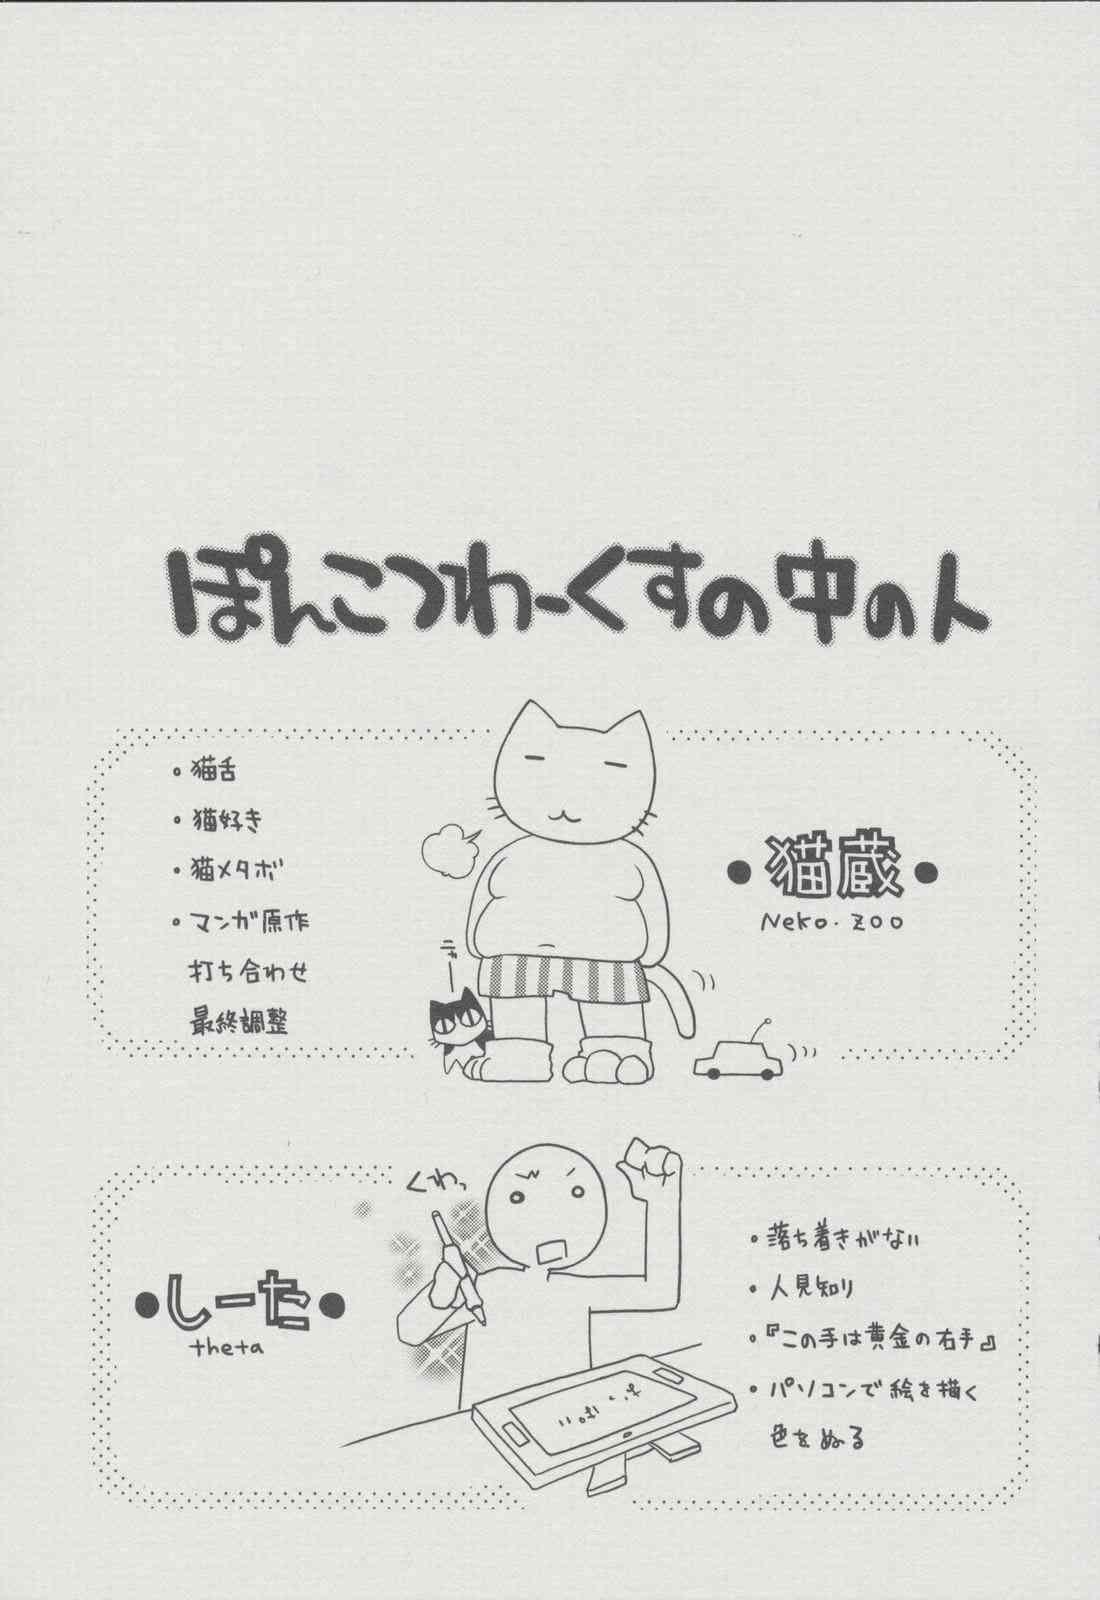 ぽんこつわーくすの中の人
・猫舌
・猫好き
・猫メタボ
・マンガ原作
打ち合わせ
最終調整
にゃー
●猫蔵●
Neko・zoo
くわっ
●しーた●
theta
・落ち着きがない
・人見知り
・『この手は黄金の右手』
・パソコンで絵を描く
色をぬる